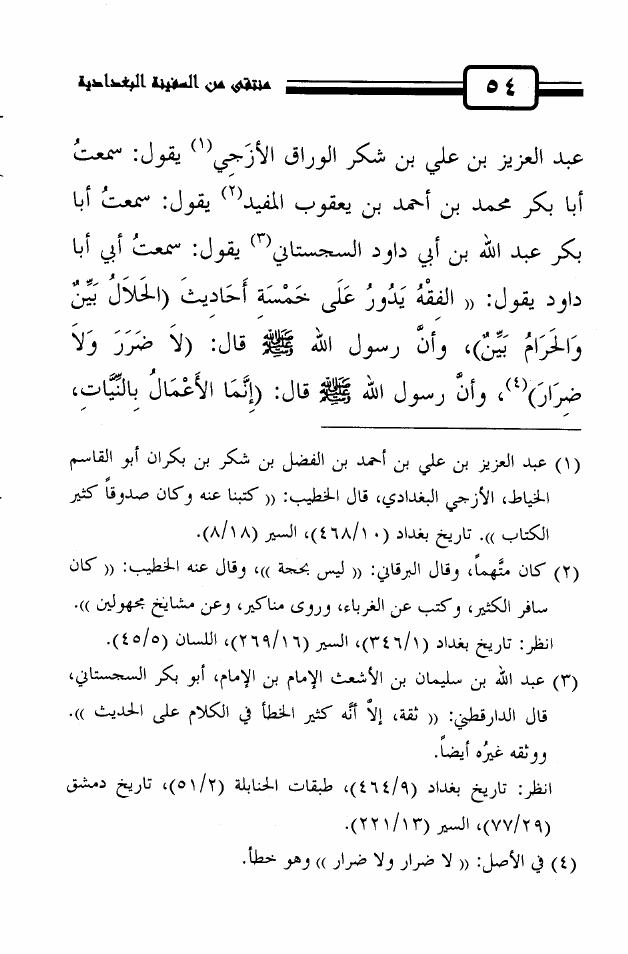 ٥٤ منتقى من السفينة البغدادية
عبد العزيز بن علي بن شكر الوراق الأزَجِي(١) يقول: سمعتُ
أبا بكر محمد بن أحمد بن يعقوب المفيد(٢) يقول: سمعتُ أبا
بكر عبد الله بن أبي داود السجستاني(٣) يقول: سمعتُ أبي أبا
داود يقول: (( الفِقْهُ يَدُورُ عَلَى خَمْسَةِ أَحَادِيثَ (الحَلاَلُ بَيِّنٌ
وَالحَرَامُ بَيِّنٌ)، وأنَّ رسول الله ﷺ قال: (لاَ ضَرَرَ وَلاَ
ضِرَارَ)(٤)، وأنَّ رسول الله ﷺ قال: (إِنَّمَا الأَعْمَالُ بِالنِّيَّاتِ،
(١) عبد العزيز بن علي بن أحمد بن الفضل بن شكر بن بكران أبو القاسم
الخياط، الأزجي البغدادي، قال الخطيب: (( كتبنا عنه وكان صدوقاً كثير
الكتاب )). تاريخ بغداد (٤٦٨/١٠)، السير (٨/١٨).
(٢) كان متَّهماً، وقال البرقاني: (( ليس بحجة ))، وقال عنه الخطيب: (( كان
سافر الكثير، وكتب عن الغرباء، وروى مناكير، وعن مشايخ مجهولين )).
انظر: تاريخ بغداد (٣٤٦/١)، السير (٢٦٩/١٦)، اللسان (٤٥/٥).
(٣) عبد الله بن سليمان بن الأشعث الإمام بن الإمام، أبو بكر السجستاني،
قال الدارقطني: (( ثقة، إلاَّ أنَّه كثير الخطأ في الكلام على الحديث )).
ووثقه غيرُه أيضاً.
انظر: تاريخ بغداد (٤٦٤/٩)، طبقات الحنابلة (٥١/٢)، تاريخ دمشق
(٧٧/٢٩)، السير (٢٢١/١٣).
(٤) في الأصل: (( لا ضرار ولا ضرار )) وهو خطأ.